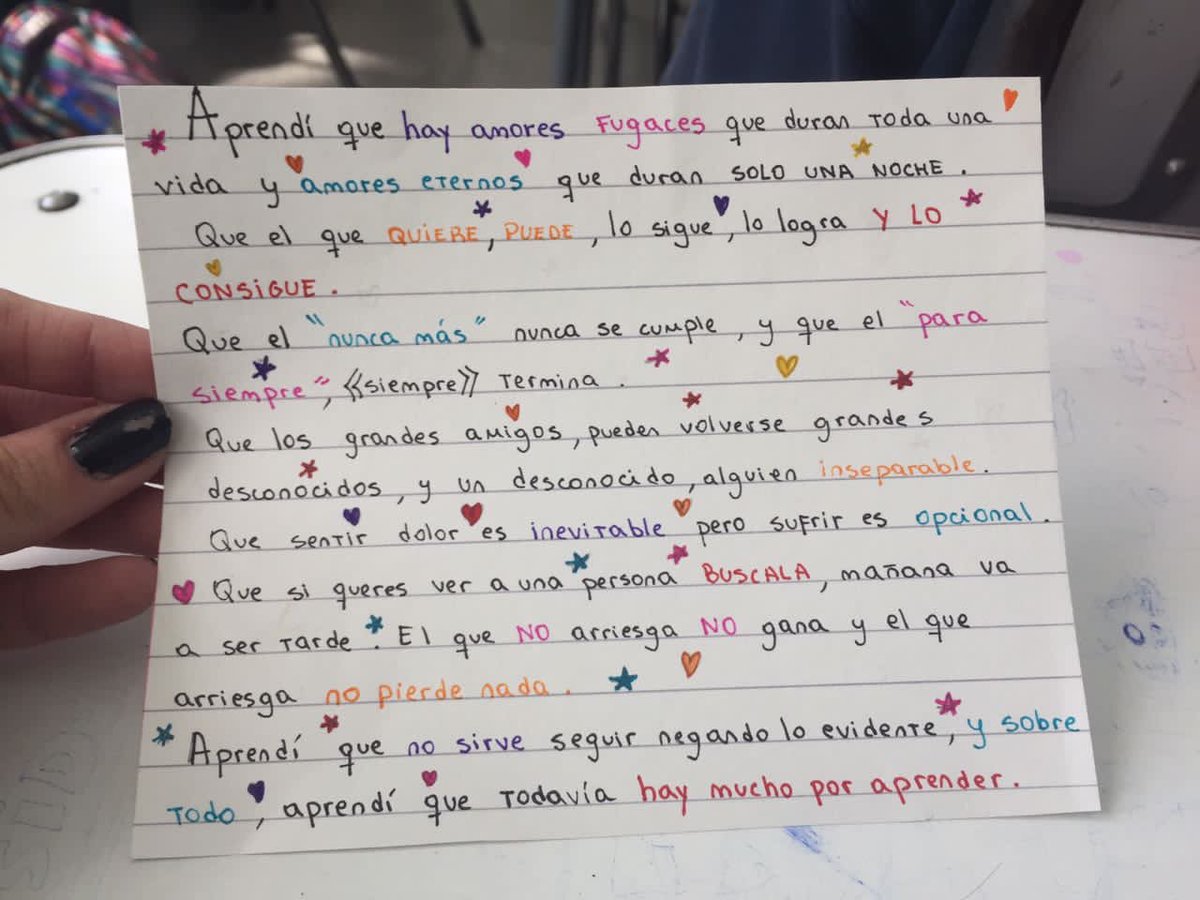 Aprendí que hay amores fugaces que duran toda una
vida y amores eternos que duran SOLO UNA NOCHE.
Que el que QUIERE, PUEDE, lo sigue, lo logra Y LO
CONSIGUE.
Que el "nunca más" nunca se cumple, y que el "para
siempre", «siempre» termina.
Que los grandes amigos, pueden volverse grandes
desconocidos, y un desconocido, alguien inseparable.
Que sentir dolor es inevitable pero sufrir es opcional.
Que si queres ver a una persona BUSCALA, mañana va
a ser tarde. El que NO arriesga NO gana y el que
arriesga no pierde nada.
Aprendí que no sirve seguir negando lo evidente, y sobre
todo, aprendí que todavía hay mucho por aprender.